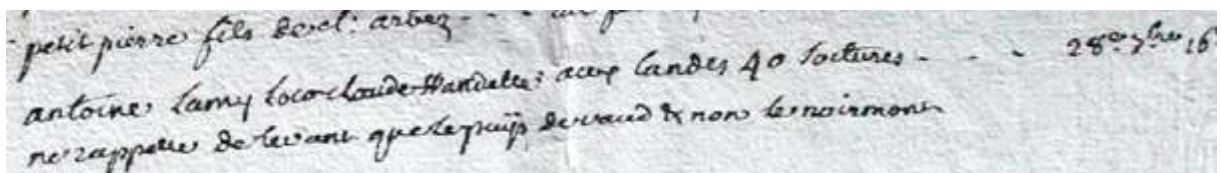 petit pierre fils de cl: arbez - - -
antoine Lamy loco claude Vandelle: aux landes 40 soitures - - - 28e 7bre 16
ne rappelle de levant que le païis de vaud & non le noirmont